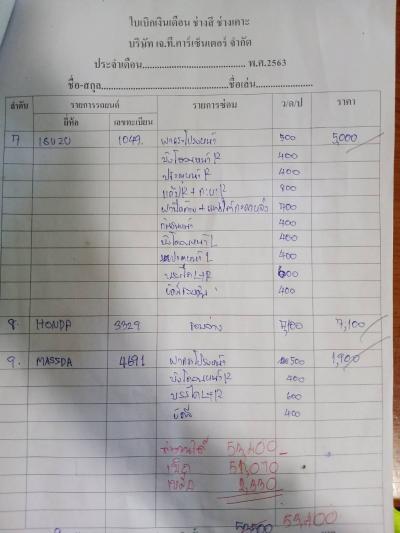 ใบเบิกเงินเดือน ช่างสี ช่างเคาะ
บริษัท เจ.ที.คาร์เซ็นเตอร์ จำกัด
ประจำเดือน........................................ พ.ศ.2563
ชื่อ-สกุล..................................................ชื่อเล่น......................
ลำดับ รายการรถยนต์ รายการซ่อม ว/ด/ป ราคา
ยี่ห้อ เลขทะเบียน
7 ISUZU 1049 ฝากระโปรงหน้า 500 5,000
บังโคลนหน้า R 400
ประตูหน้า R 400
แค๊ป R + กะบะ R 800
700
กันชนหน้า 400
บังโคลนหน้า L 400
ประตูหน้า L 400
บรรได L+R 600
400
8. HONDA 3329 7,100 7,100
9. MASSDA 4691 ฝากระโปรงหน้า 500 1,900
บังโคลนหน้า R 400
บรรได L+R 600
400
53,400
เบิก 51,070
เหลือ 2,330
53,400